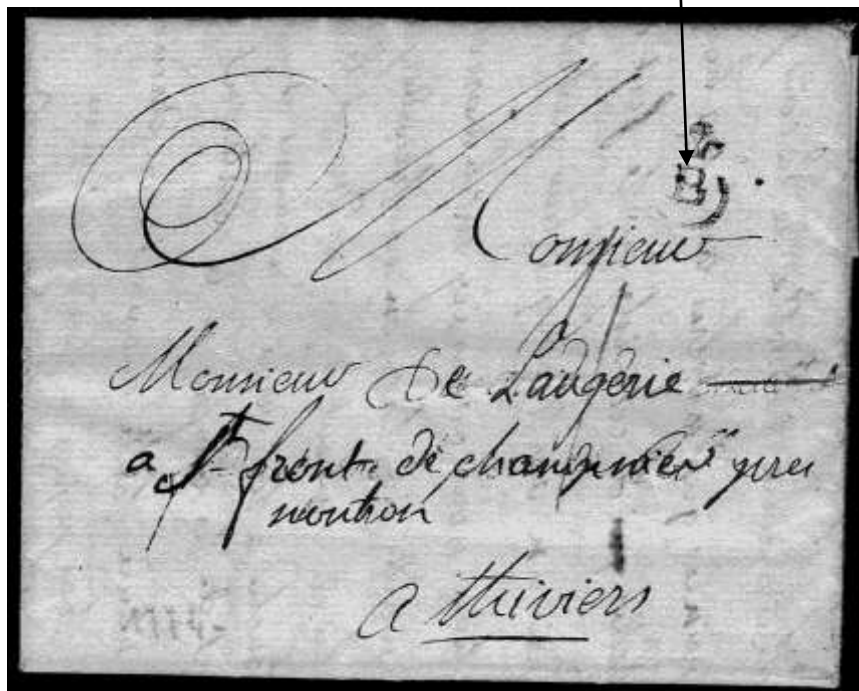 B
Monsieur
Monsieur De Laugerie
a St front de champnier pres
nontron
a thiviers
1774